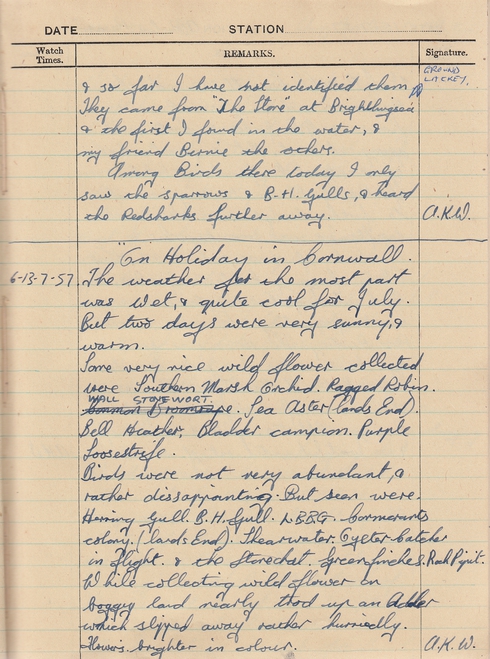 DATE STATION
Watch Times. REMARKS. Signature.
GROUND LACKEY.
& so far I have not identified them
They came from "The Stone" at Brightlingsea
& the first I found in the water, &
my friend Bernie the others.
Among Birds there today I only
saw the sparrows & B.H. Gulls, & heard
the Redsharks further away. A.K.W.
"On Holiday in Cornwall.
6-13-7-57. The weather for the most part
was wet, & quite cool for July.
But two days were very sunny, &
warm.
Some very nice wild flower collected
were Southern Marsh Orchid. Ragged Robin.
WALL STONEWORT.
Common Broomrape. Sea Aster (lands End).
Bell Heather, Bladder campion. Purple
Loosestrife.
Birds were not very abundant, &
rather dissappointing. But seen were.
Herring Gull. B.H. Gull. LBBG. Cormorants
colony. (lands End). Shearwater. Oyster Catcher
in flight. & the Stonechat. Greenfinches. Rock Pipit.
While collecting wild flower on
boggy land nearly trod up an Adder
which slipped away rather hurriedly.
Flowers brighter in colour. A.K.W.